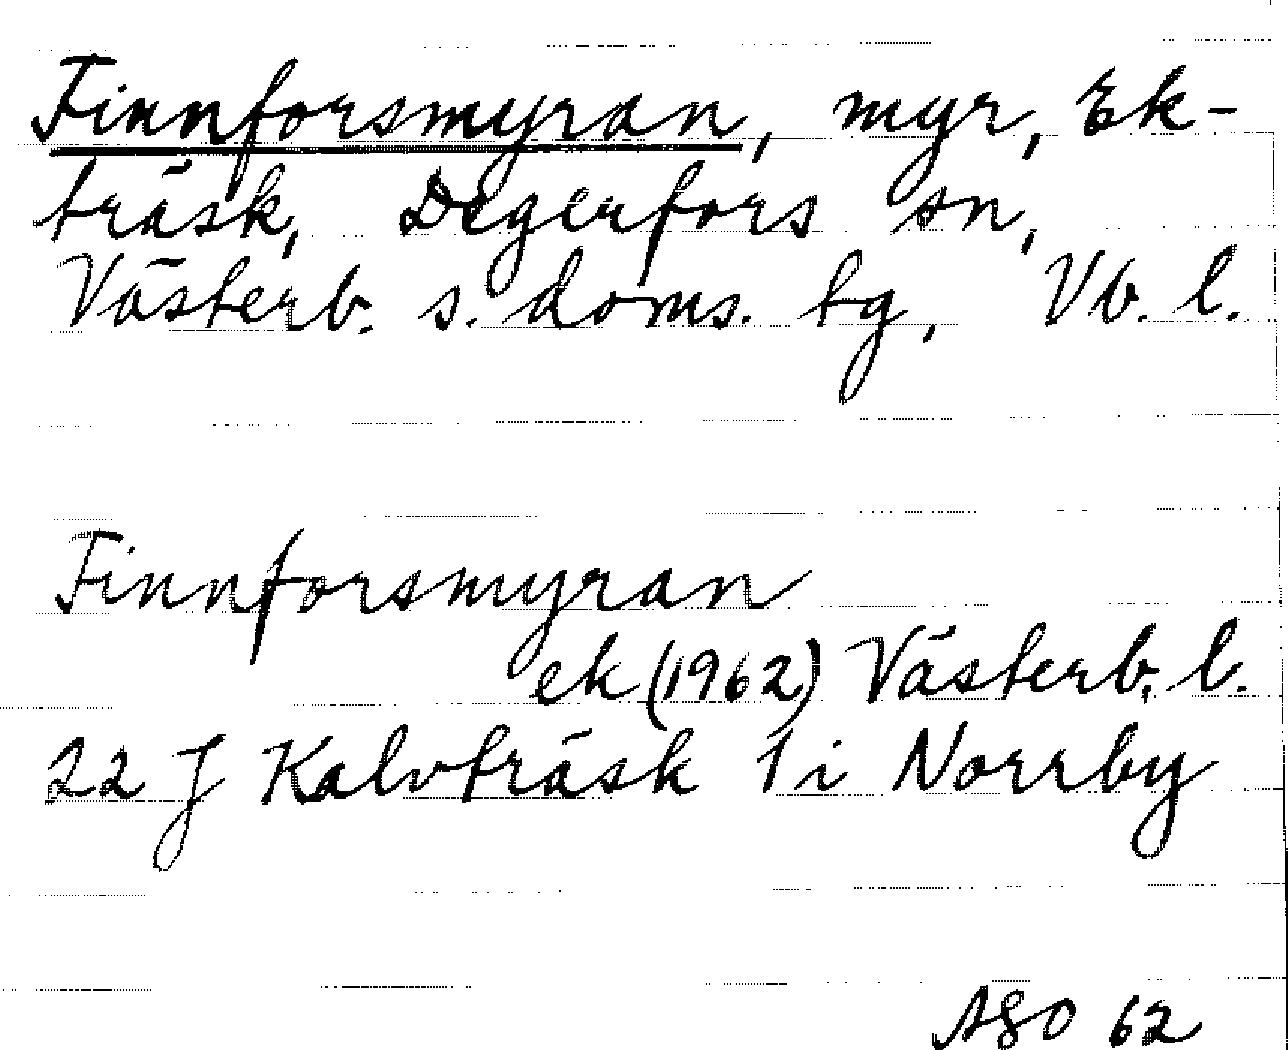 Finnforsmyran, myr, Ek-
träsk, Degerfors sn,
Västerb. s. doms. tg, Vb. l.
Finnforsmyran
ek (1962) Västerb. l.
22 J Kalvträsk 1 i Norrby
ASO 62